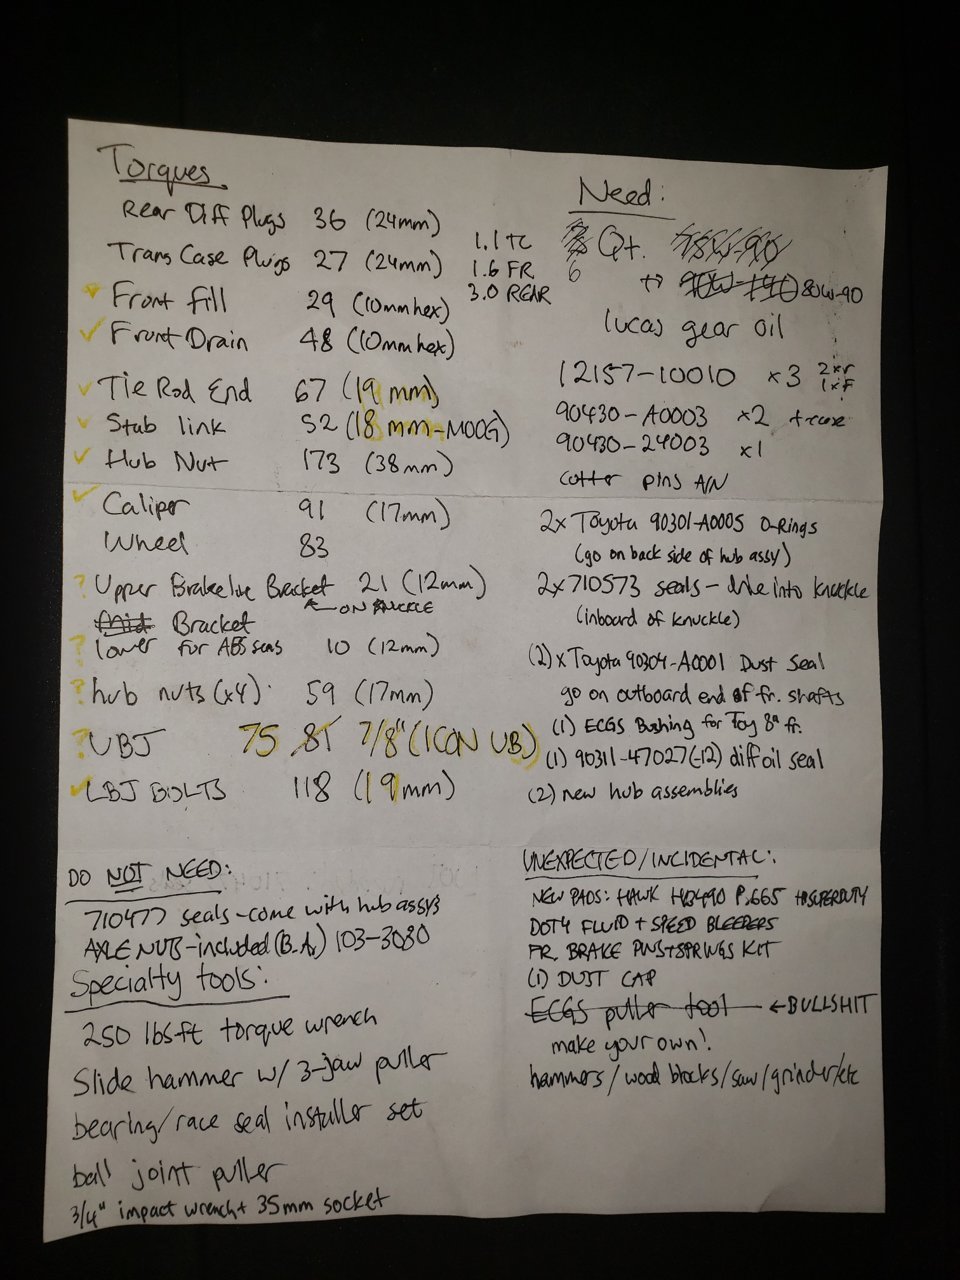 Torques
Rear Diff Plugs 36 (24mm)
Trans Case Plugs 27 (24mm)
Front fill 29 (10mm hex)
Front Drain 48 (10mm hex)
1.1 TC
1.6 FR
3.0 REAR
Tie Rod End 67 (19 mm)
Stab link 52 (18 mm-MOOG)
Hub Nut 173 (38mm)
Caliper 91 (17mm)
Wheel 83
? Upper Brake line Bracket 21 (12mm)
ON KNUCKLE
Bracket
? lower for ABS sens 10 (12mm)
? hub nuts (x4) 59 (17mm)
? UBJ 75 81 7/8" (ICON UBJ)
LBJ BOLTS 118 (19mm)
DO NOT NEED:
710477 seals-come with hub assy's
AXLE NUTS-included (B.A.) 103-3080
Specialty tools:
250 lbs-ft torque wrench
Slide hammer w/ 3-jaw puller
bearing/race seal installer set
ball joint puller
3/4" impact wrench + 35mm socket
Need:
6 Qt. 75W-90
80W-90
lucas gear oil
12157-10010 x3 2xr
1xF
90430-A0003 x2 t-case
90430-24003 x1
cotter pins A/N
2x Toyota 90301-A0005 O-Rings
(go on back side of hub assy)
2x 710573 seals - drive into knuckle
(inboard of knuckle)
(2)x Toyota 90304-A0001 Dust Seal
go on outboard end of fr. shafts
(1) ECGS Bushing for Toy 8" fr.
(1) 90311-47027(-12) diff oil seal
(2) new hub assemblies
UNEXPECTED/INCIDENTAL:
NEW PADS: HAWK P.665 SUPERDUTY
DOT4 FLUID + SPEED BLEEDERS
FR. BRAKE PINS+SPRINGS KIT
(1) DUST CAP
ECGS puller tool ← BULLSHIT
make your own!
hammers/wood blocks/saw/grinder/etc